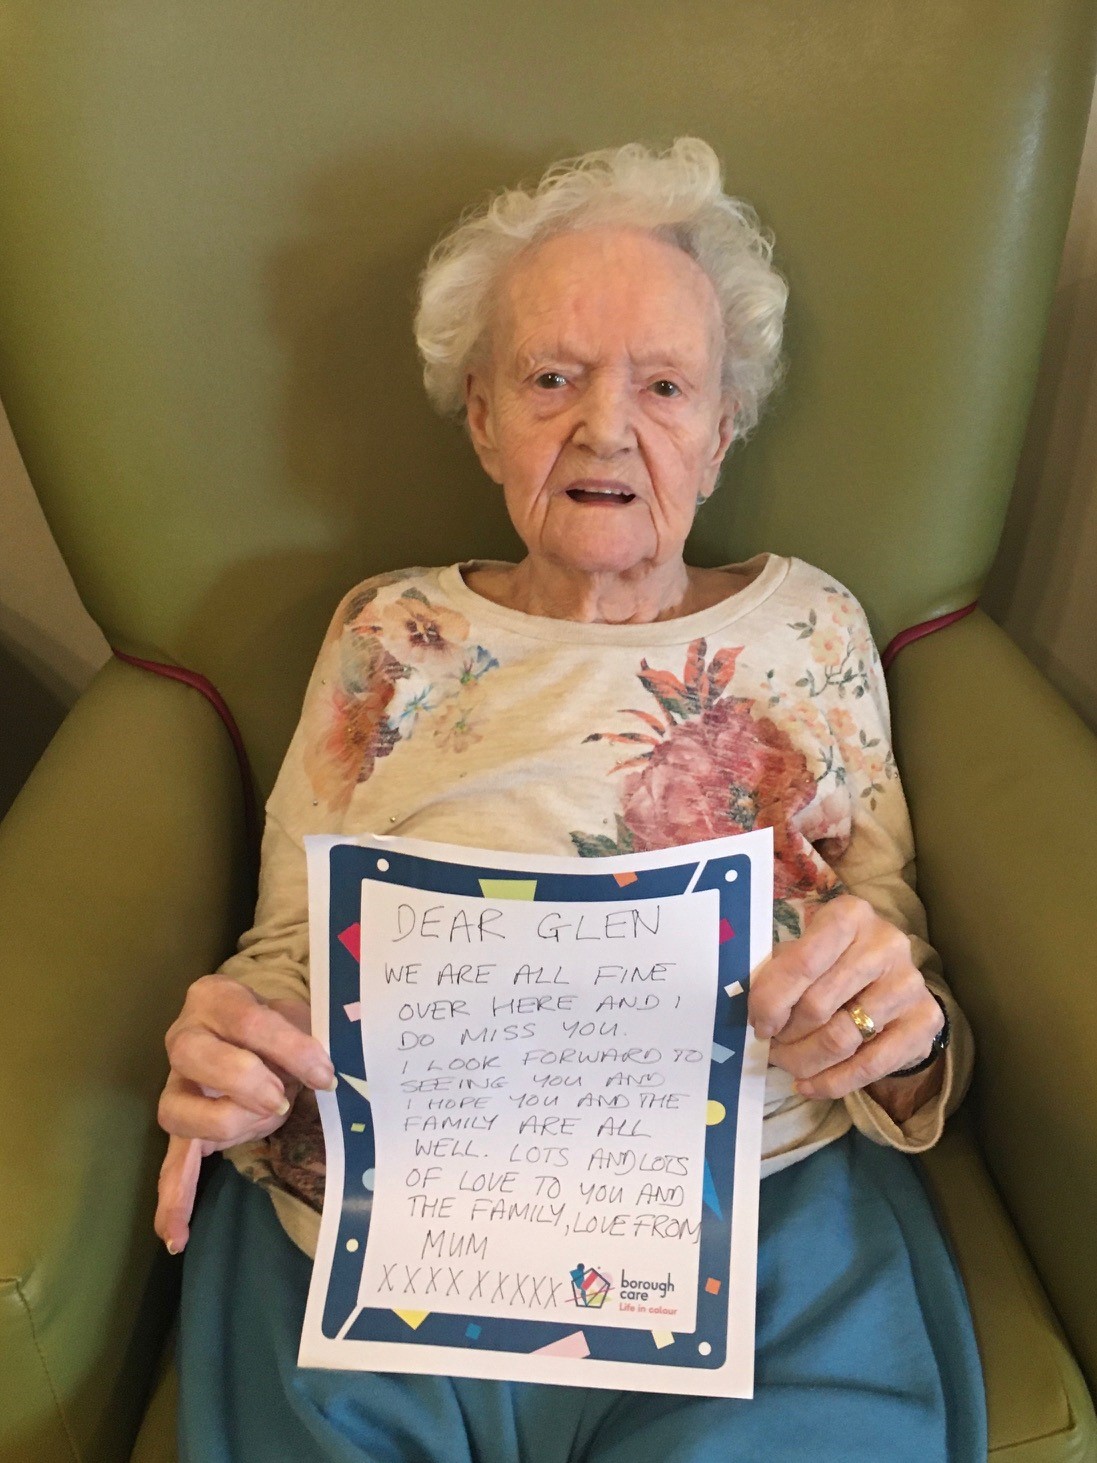 DEAR GLEN
WE ARE ALL FINE
OVER HERE AND I
DO MISS YOU.
I LOOK FORWARD TO
SEEING YOU AND
I HOPE YOU AND THE
FAMILY ARE ALL
WELL. LOTS AND LOTS
OF LOVE TO YOU AND
THE FAMILY, LOVE FROM
MUM
XXXX XXXXX
borough
care
Life in colour